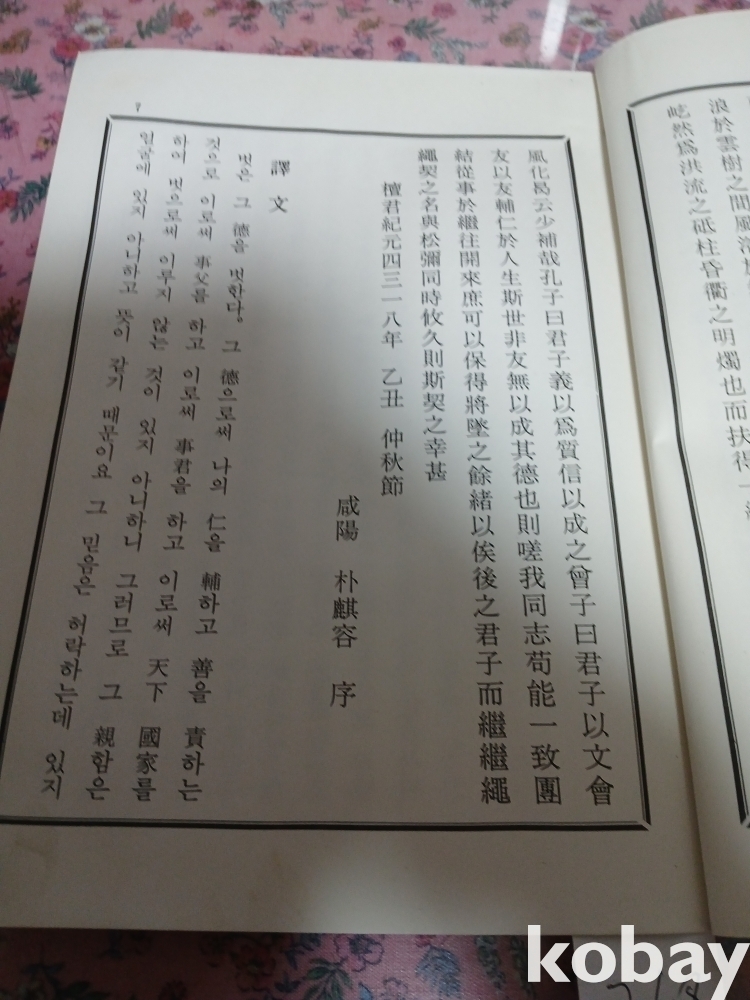 浪於雲樹之間風
屹然爲洪流之砥柱昏衢之明燭也而扶得一
風化曷云少補哉孔子曰君子義以爲質信以成之曾子曰君子以文會
友以友輔仁於人生斯世非友無以成其德也則嗟我同志苟能一致團
結從事於繼往開來庶可以保得將墜之餘緖以俟後之君子而繼繼繩
繩契之名與松彌同時攸久則斯契之幸甚
檀君紀元四三一八年 乙丑 仲秋節
咸陽 朴麒容 序
譯文
벗은 그 德을 벗한다. 그 德으로써 나의 仁을 輔하고 善을 責하는
것으로 이로써 事父를 하고 이로써 事君을 하고 이로써 天下 國家를
하여 벗으로써 이루지 않는 것이 있지 아니하니 그러므로 그 親함은
얼굴에 있지 아니하고 뜻이 같기 때문이요 그 믿음은 허락하는데 있지
kobay